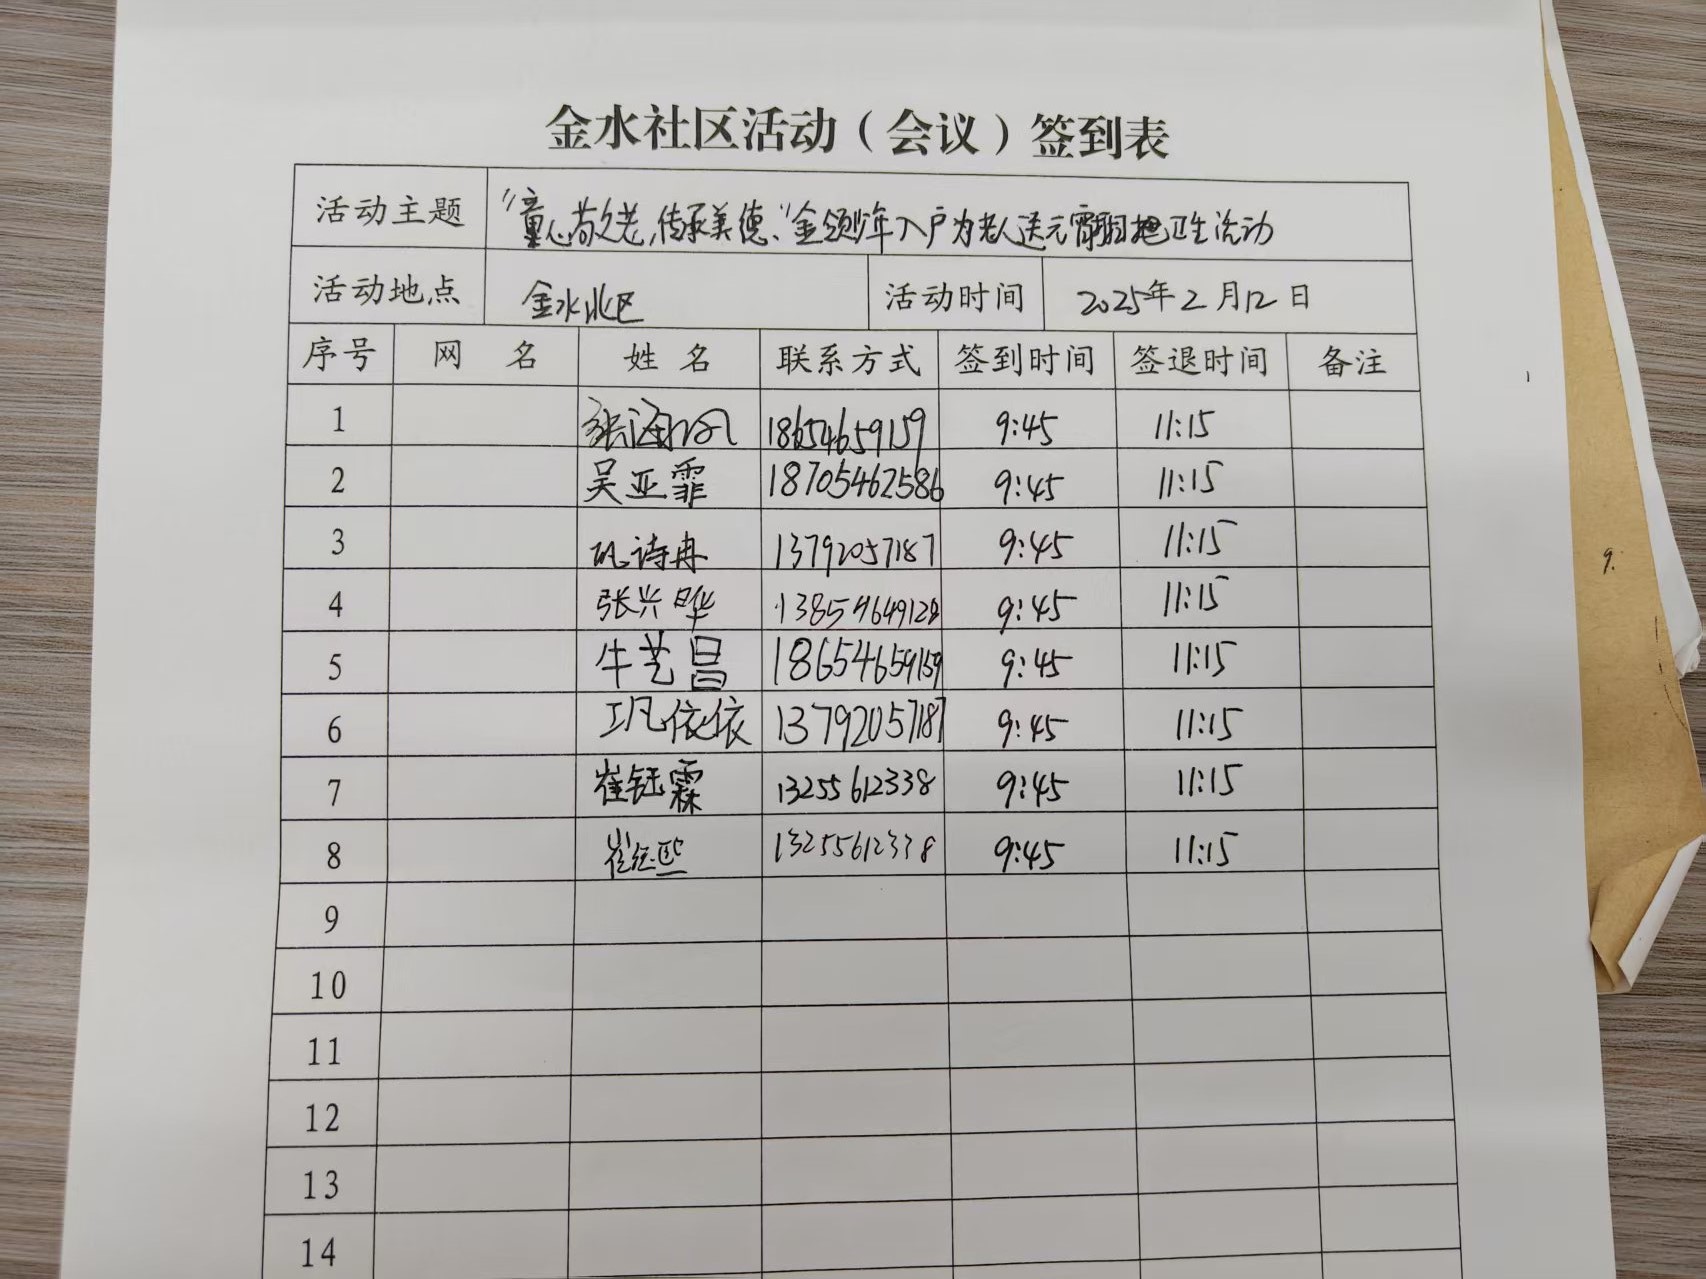 金水社区活动（会议）签到表
活动主题 "童心敬老,传承美德、"金领少年入户为老人送元宵打扫卫生活动
活动地点 金水北区 活动时间 2025年2月12日
序号 网 名 姓 名 联系方式 签到时间 签退时间 备注
1 张海 18654659159 9:45 11:15
2 吴亚霏 18705462586 9:45 11:15
3 巩诗冉 13792057187 9:45 11:15
4 张兴晔 13854649128 9:45 11:15
5 牛艺昌 18654659159 9:45 11:15
6 巩依依 13792057187 9:45 11:15
7 崔钰霖 13255612338 9:45 11:15
8 崔钰熙 13255612338 9:45 11:15
9
10
11
12
13
14
9.